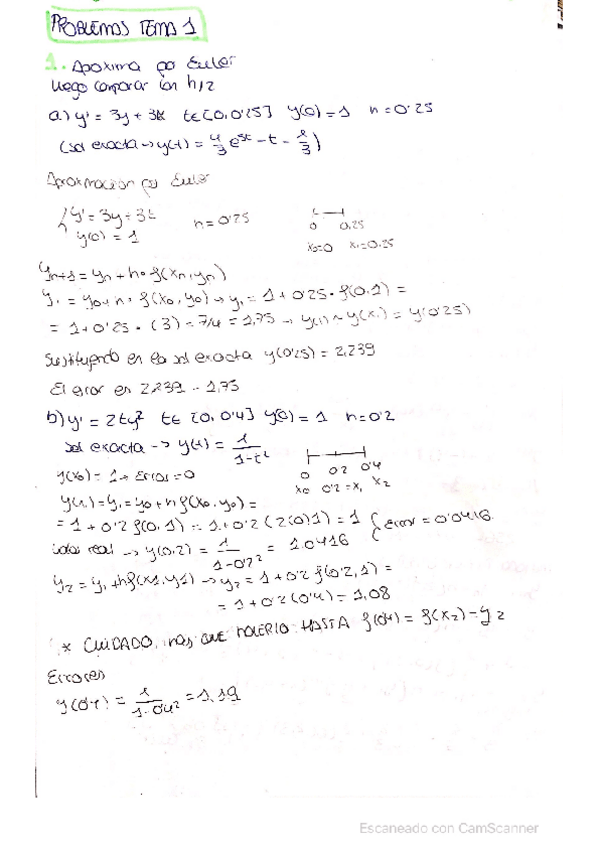 PROBLEMAS TEMA 1
1. Aproxima por Euler
luego comparar con h/2
a) y' = 3y + 3t t∈[0, 0'25] y(0) = 1 h = 0'25
(sol exacta → y(t) = 4/3 e^3t - t - 1/3)
Aproximacion por Euler
y' = 3y + 3t h = 0'25
y(0) = 1
0 0,25
x0=0 x1=0.25
yn+1 = yn + h· f(xn, yn)
y1 = y0 + h · f(x0, y0) → y1 = 1 + 0'25 · f(0,1) =
= 1 + 0'25 · (3) = 7/4 = 1,75 → y(1) ~ y(x1) = y(0'25)
Sustituyendo en la sol exacta y(0'25) = 2,239
El error es 2,239 - 1,75
b) y' = 2ty² t∈ [0, 0'4] y(0) = 1 h = 0'2
sol exacta → y(t) = 1/1-t²
0 0'2 0'4
x0 0'2 = x1 x2
y(x0) = 1 → Error = 0
y(x1) = y1 = y0 + h f(x0, y0) =
= 1 + 0'2 f(0, 1) = 1 + 0'2 (2(0)1) = 1 { error = 0'0416
Valor real → y(0,2) = 1/1-0'2² = 1.0416
y2 = y1 + h f(x1, y1) → y2 = 1 + 0'2 f(0'2, 1) =
= 1 + 0'2 (0'4) = 1,08
* CUIDADO, HAY QUE HACERLO HASTA f(0'4) = f(x2) - y2
Errores
y(0'4) = 1/1-0'4² = 1,19
Escaneado con CamScanner